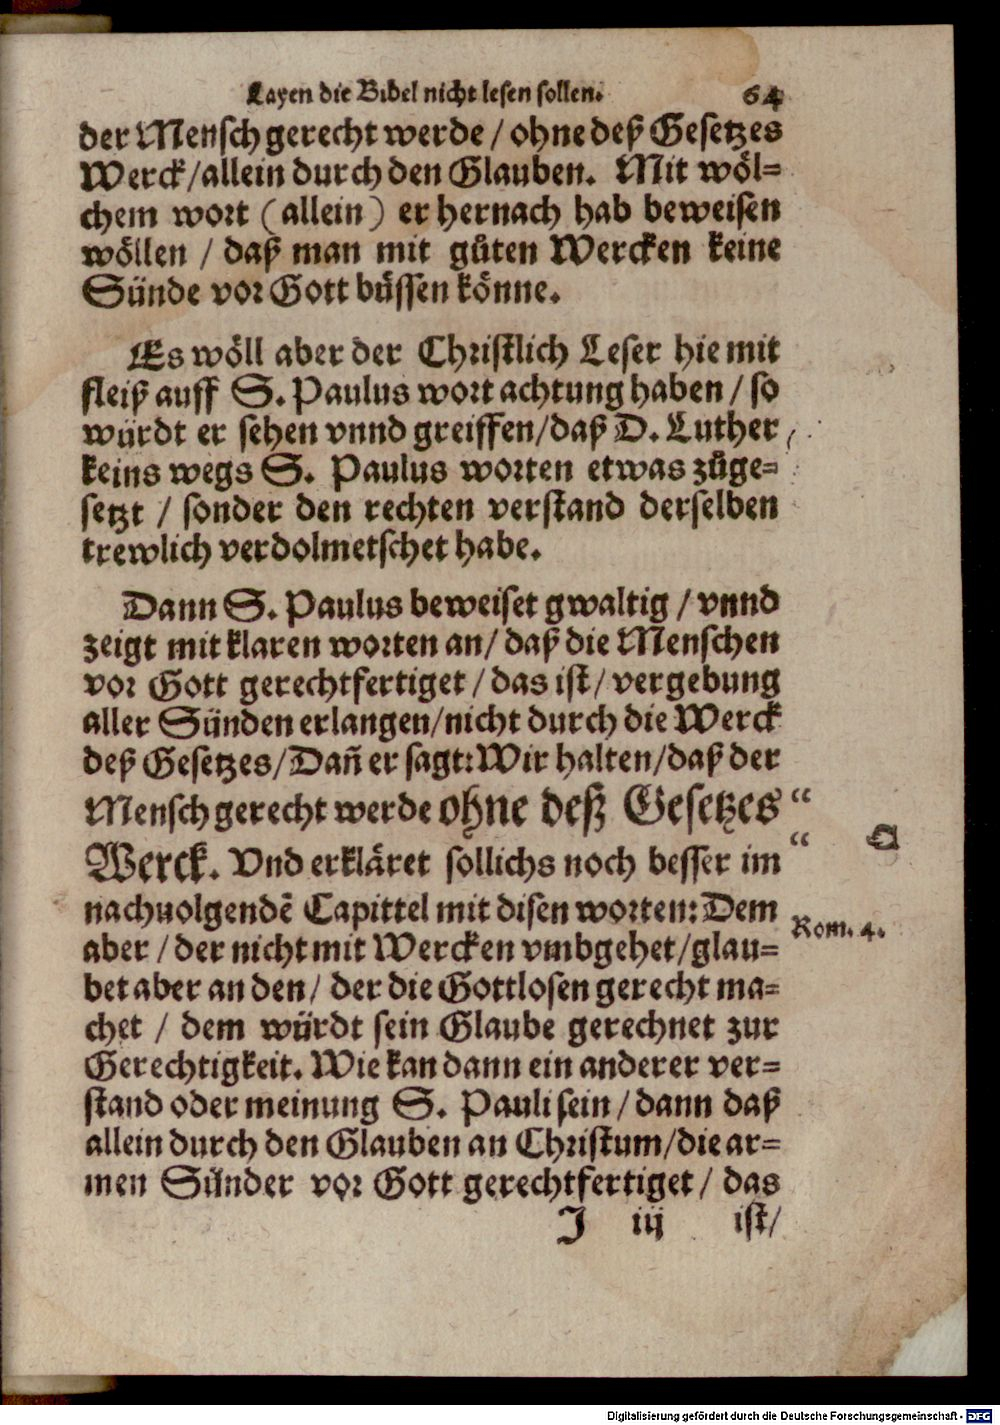 Layen die Bibel nicht lesen sollen. 64
der Mensch gerecht werde / ohne deß Gesetzes
Werck / allein durch den Glauben. Mit wöl-
chem wort (allein) er hernach hab beweisen
wöllen / daß man mit gůten Wercken keine
Sünde vor Gott bůssen könne.
Es wöll aber der Christlich Leser hie mit
fleiß auff S. Paulus wort achtung haben / so
würdt er sehen vnnd greiffen / daß D. Luther /
keins wegs S. Paulus worten etwas zůge-
setzt / sonder den rechten verstand derselben
trewlich verdolmetschet habe.
Dann S. Paulus beweiset gwaltig / vnnd
zeigt mit klaren worten an / daß die Menschen
vor Gott gerechtfertiget / das ist / vergebung
aller Sünden erlangen / nicht durch die Werck
deß Gesetzes / Dañ er sagt: Wir halten / daß der
Mensch gerecht werde ohne deß Gesetzes “
Werck. Vnd erkläret sollichs noch besser im “
nachuolgendē Capittel mit disen worten: Dem
Rom. 4.
aber / der nicht mit Wercken vmbgehet / glau-
bet aber an den / der die Gottlosen gerecht ma-
chet / dem würdt sein Glaube gerechnet zur
Gerechtigkeit. Wie kan dann ein anderer ver-
stand oder meinung S. Pauli sein / dann daß
allein durch den Glauben an Christum / die ar-
men Sünder vor Gott gerechtfertiget / das
J iij ist /
Digitalisierung gefördert durch die Deutsche Forschungsgemeinschaft - DFG